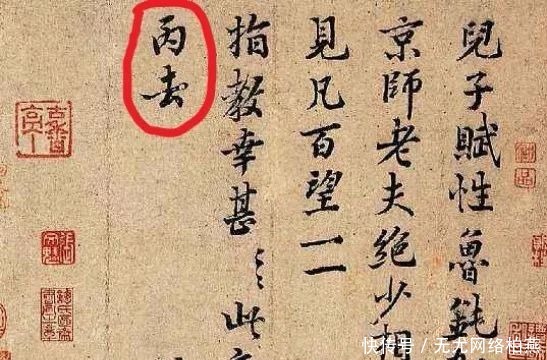 兒子賦性魯鈍
京師老夫絕少相
見凡百望一一
指教幸甚〻〻此
丙去
快传号／无尤网络柏燕